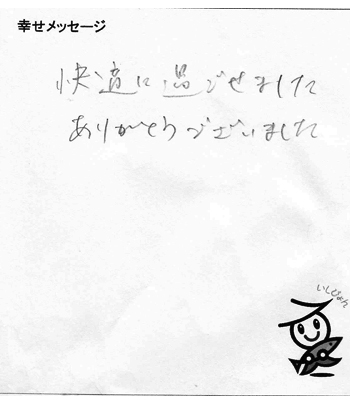 幸せメッセージ
快適に過ごせました
ありがとうございました
いしぴょん